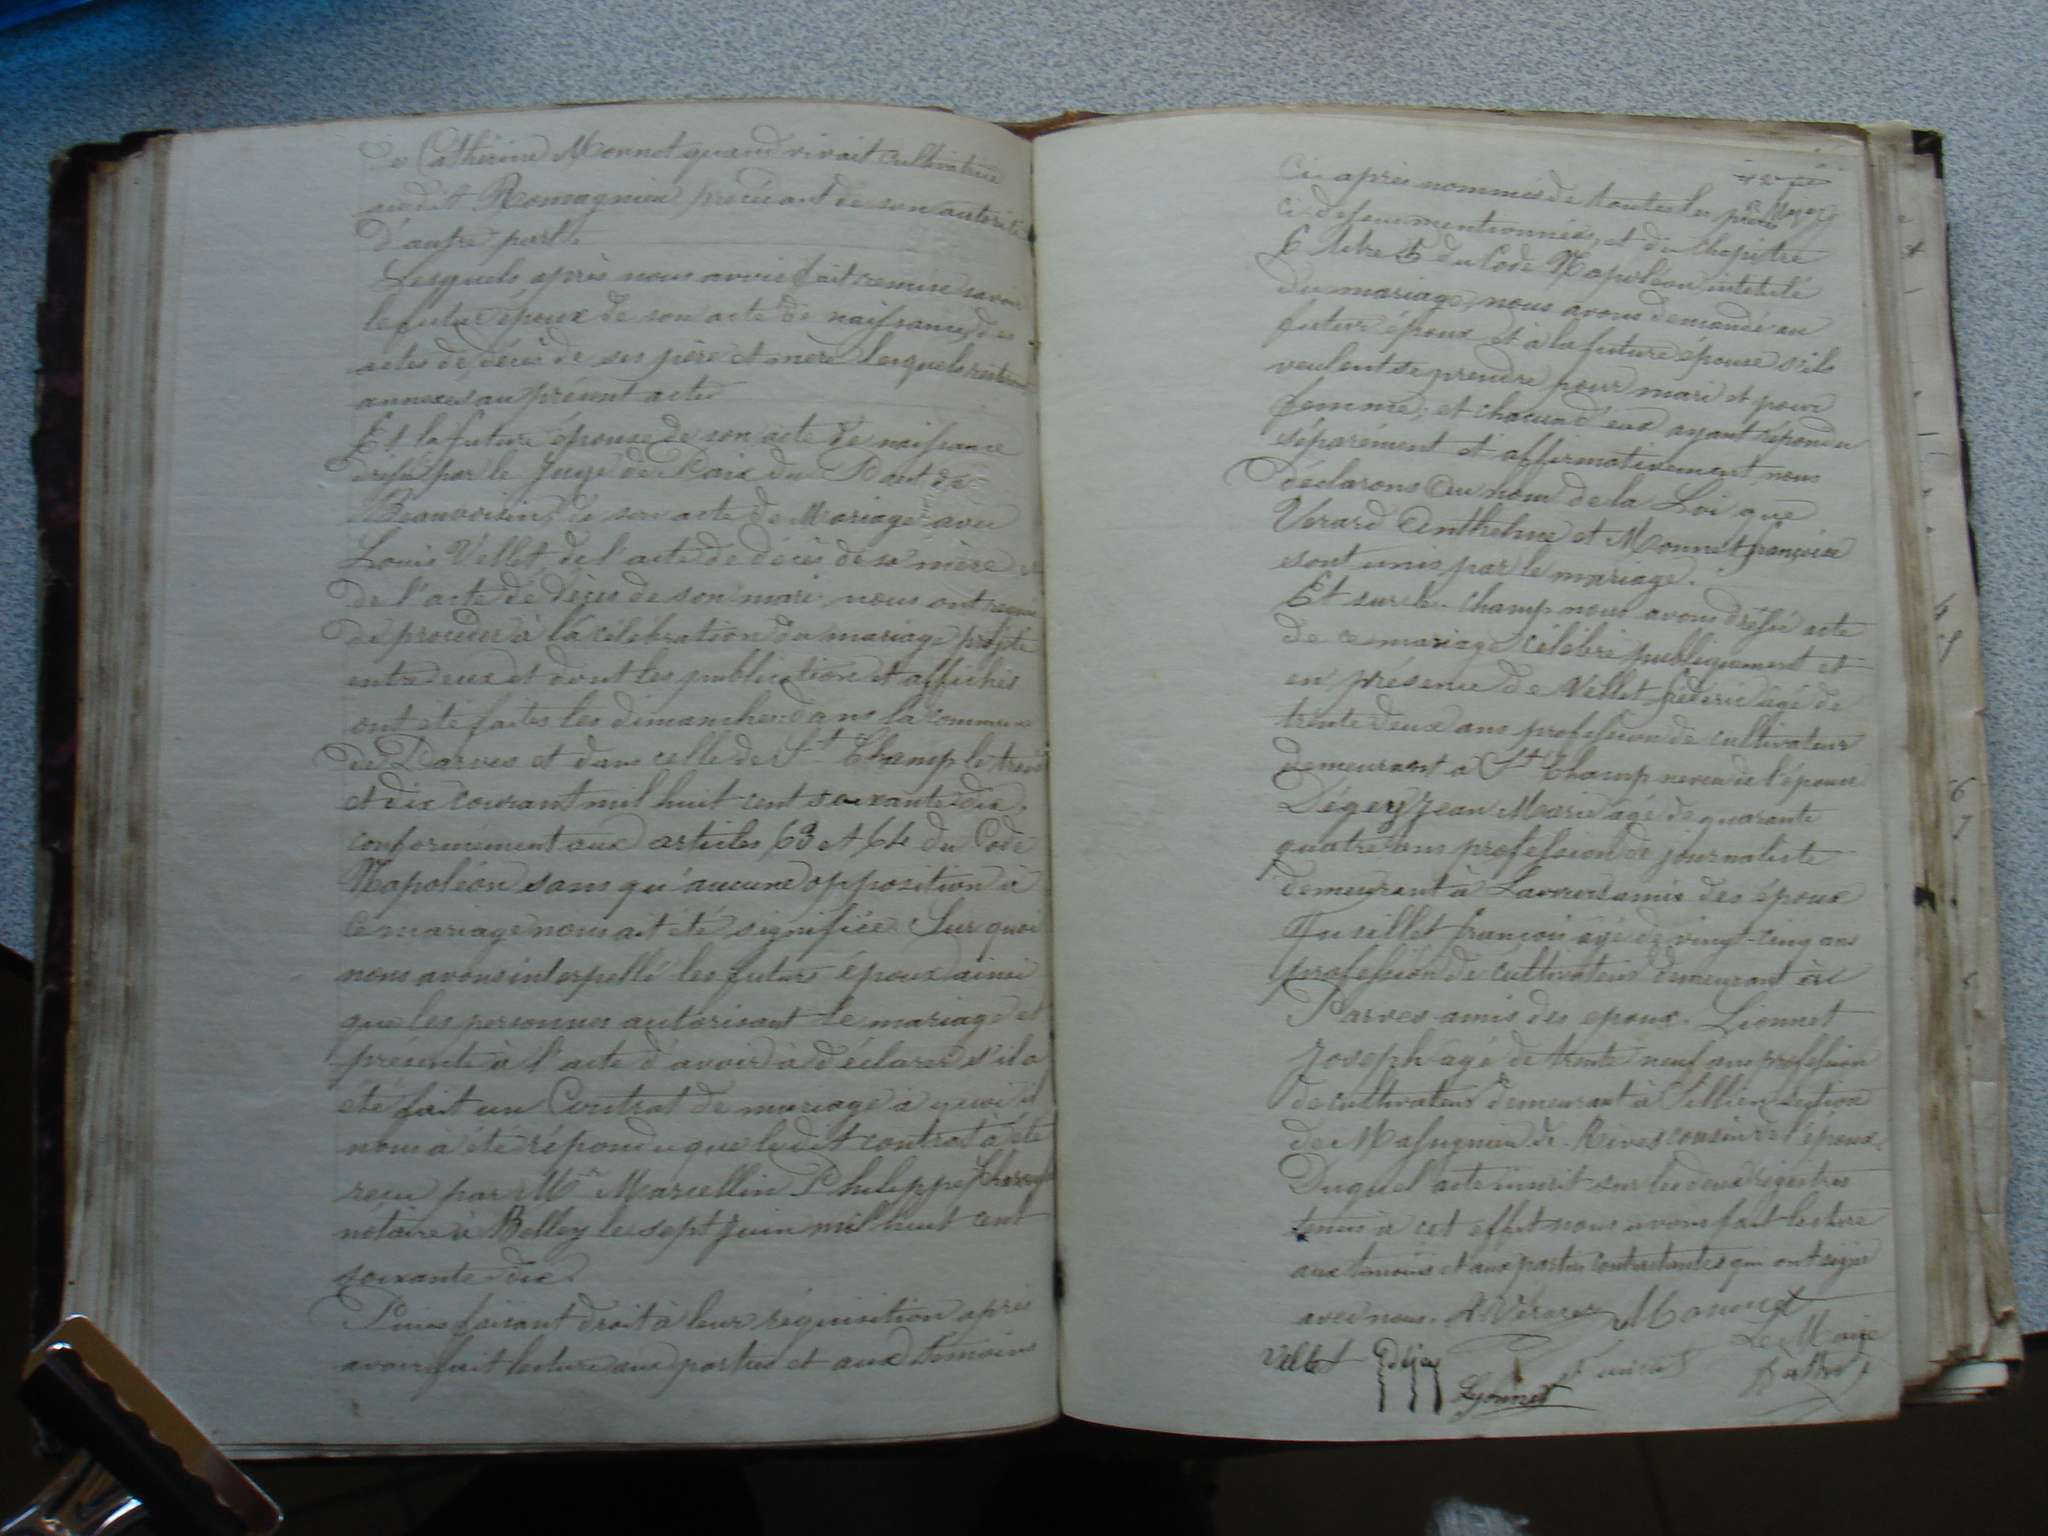 de Catherine Monnet quand vivait cultivatrice
audit Romagnieu procédant de son autorité
D'autre part.
Lesquels après nous avoir fait remise savoir
le futur époux de son acte de naissance, des
actes de décès de ses père et mère lesquels resteront
annexés au présent acte
Et la future épouse de son acte de naissance
dressé par le Juge de Paix du Pont de
Beauvoisin, de son acte de Mariage avec
Louis Vellet, de l'acte de décès de sa mère et
de l'acte de décès de son mari nous ont requis
de procéder à la célébration du mariage projeté
entre eux et dont les publication et affiches
ont été faites les dimanches dans la commune
de Parves et dans celle de St Champ le trois
et dix courant mil huit cent soixante dix.
conformément aux articles 63 et 64 du Code
Napoléon sans qu'aucune opposition à
ce mariage nous ait été signifiée. Sur quoi
nous avons interpellé les futurs époux ainsi
que les personnes autorisant le mariage et
présente à l'acte d'avoir à déclarer s'il a
été fait un Contrat de mariage à quoi il
nous a été répondu que ledit contrat à été
reçu par Me Marcellin Philippe
notaire à Belley le sept Juin mil huit cent
soixante dix.
Puis faisant droit à leur réquisition après
avoir fait lecture aux parties et aux témoins
ci-après nommés de toutes les pièces
ci-dessus mentionnées, et du chapitre
6 titre 5 du Code Napoléon intitulé
Du mariage, nous avons demandé au
futur époux et à la future épouse s'ils
veulent se prendre pour mari et pour
femme; et chacun d'eux ayant répondu
séparément et affirmativement, nous
déclarons au nom de la Loi que
Verard Anthelme et Monnet françoise
sont unis par le mariage.
Et sur le champ nous avons dressé acte
de ce mariage célébré publiquement et
en présence de Vellet frédéric âgé de
trente deux ans profession de cultivateur
demeurant à St Champ neveu de l'épouse
Dégey Jean Marie âgé de quarante
quatre ans profession de journaliste
demeurant à Lavours amis des époux
Tusillet françois âgé de vingt-cinq ans
profession de cultivateur demeurant à
Parves amis des epoux. Lionnet
Joseph âgé de trente neuf ans profession
de cultivateur demeurant à Sillien section
de Massignieu de Rives cousin de l'époux.
Duquel acte inscrit sur les deux régistres
tenus à cet effet nous avons fait lecture
aux témoins et aux parties contractantes qui ont signé
avec nous. A Verard Monnet
Le Maire
Vellet Dégey
Lyonnet